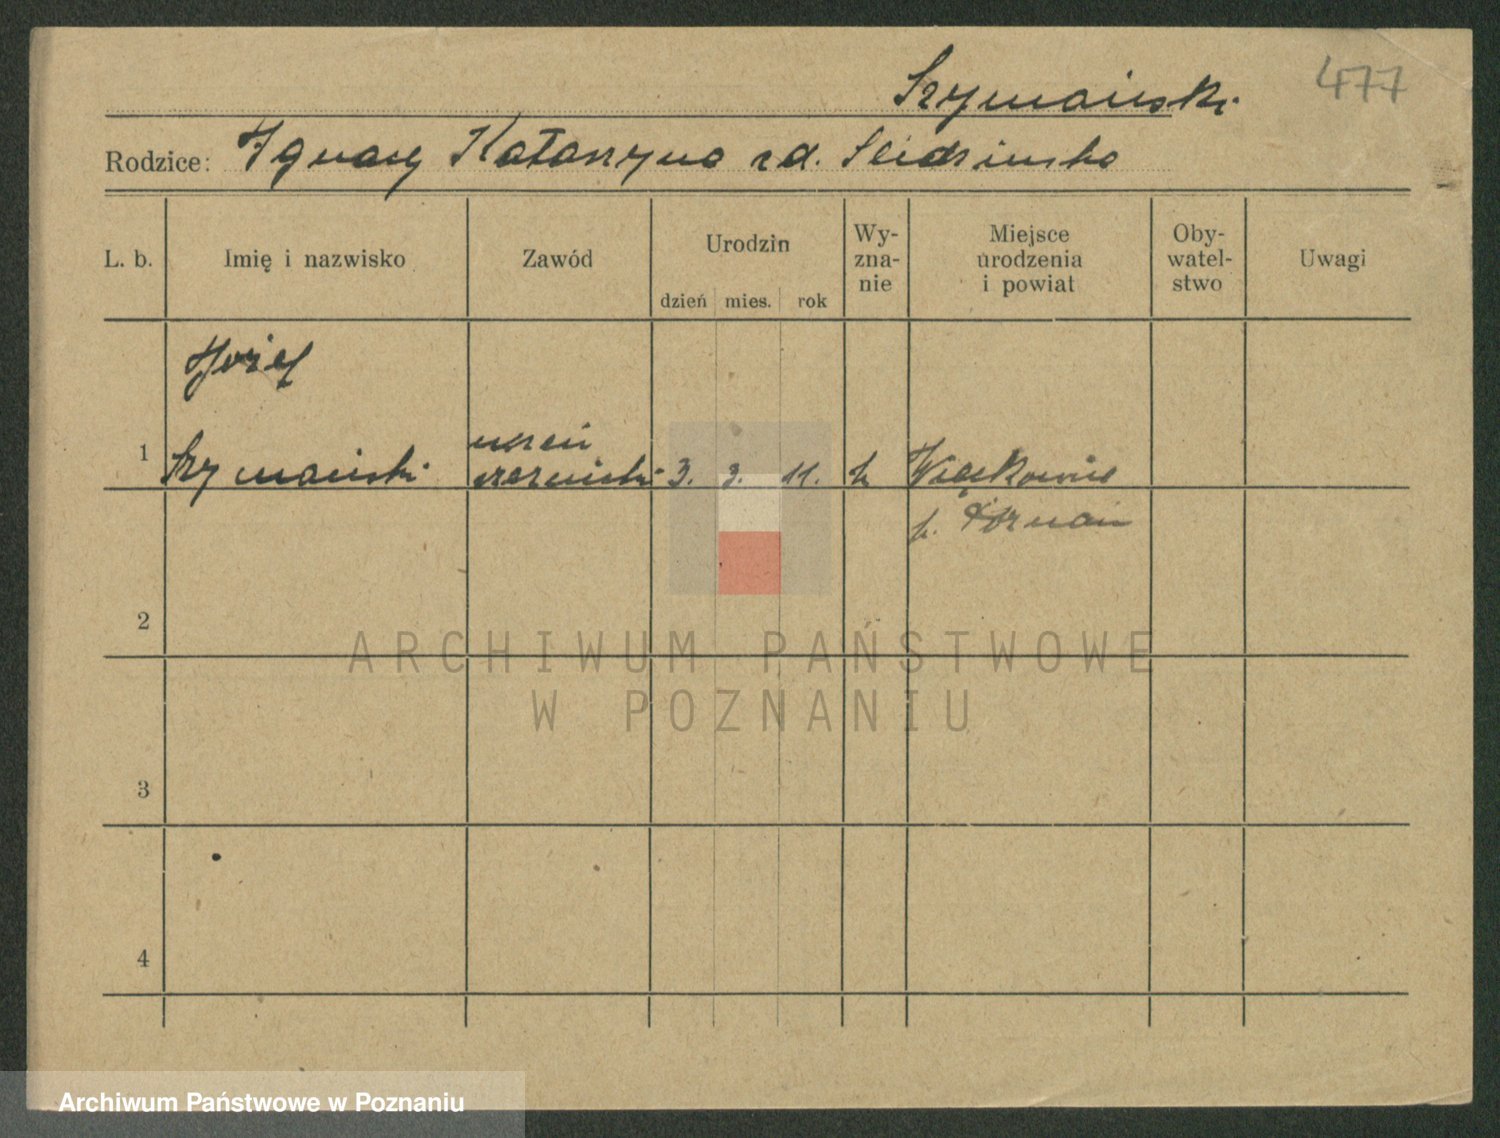 Szymański
477
Rodzice: Ignacy Katarzyna zd. Śledzińska
L. b.
Imię i nazwisko
Zawód
Urodzin
dzień mies. rok
Wy-
zna-
nie
Miejsce
urodzenia
i powiat
Oby-
watel-
stwo
Uwagi
Józef
1 Szymański uczeń 3. 3. 11. k Więckowice
p. Poznań
2
3
4
ARCHIWUM PAŃSTWOWE
W POZNANIU
Archiwum Państwowe w Poznaniu